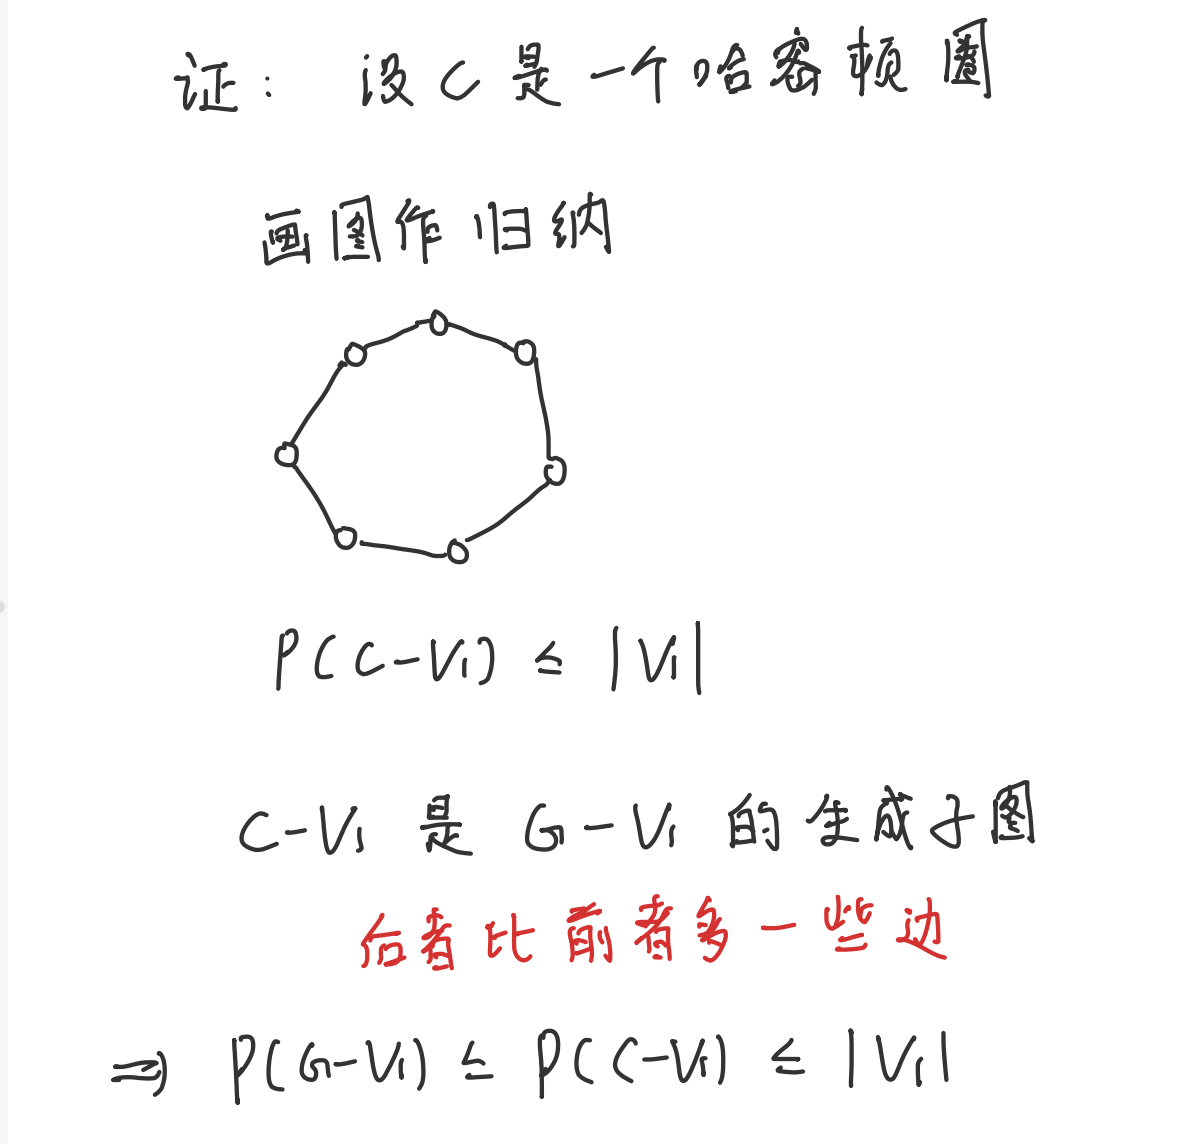 证： 设 C 是 一 个 哈 密 顿 圈
画 图 作 归 纳
P(C-V₁) ≤ |V₁|
C-V₁ 是 G-V₁ 的 生 成 子 图
后 者 比 前 者 多 一 些 边
⇒ P(G-V₁) ≤ P(C-V₁) ≤ |V₁|